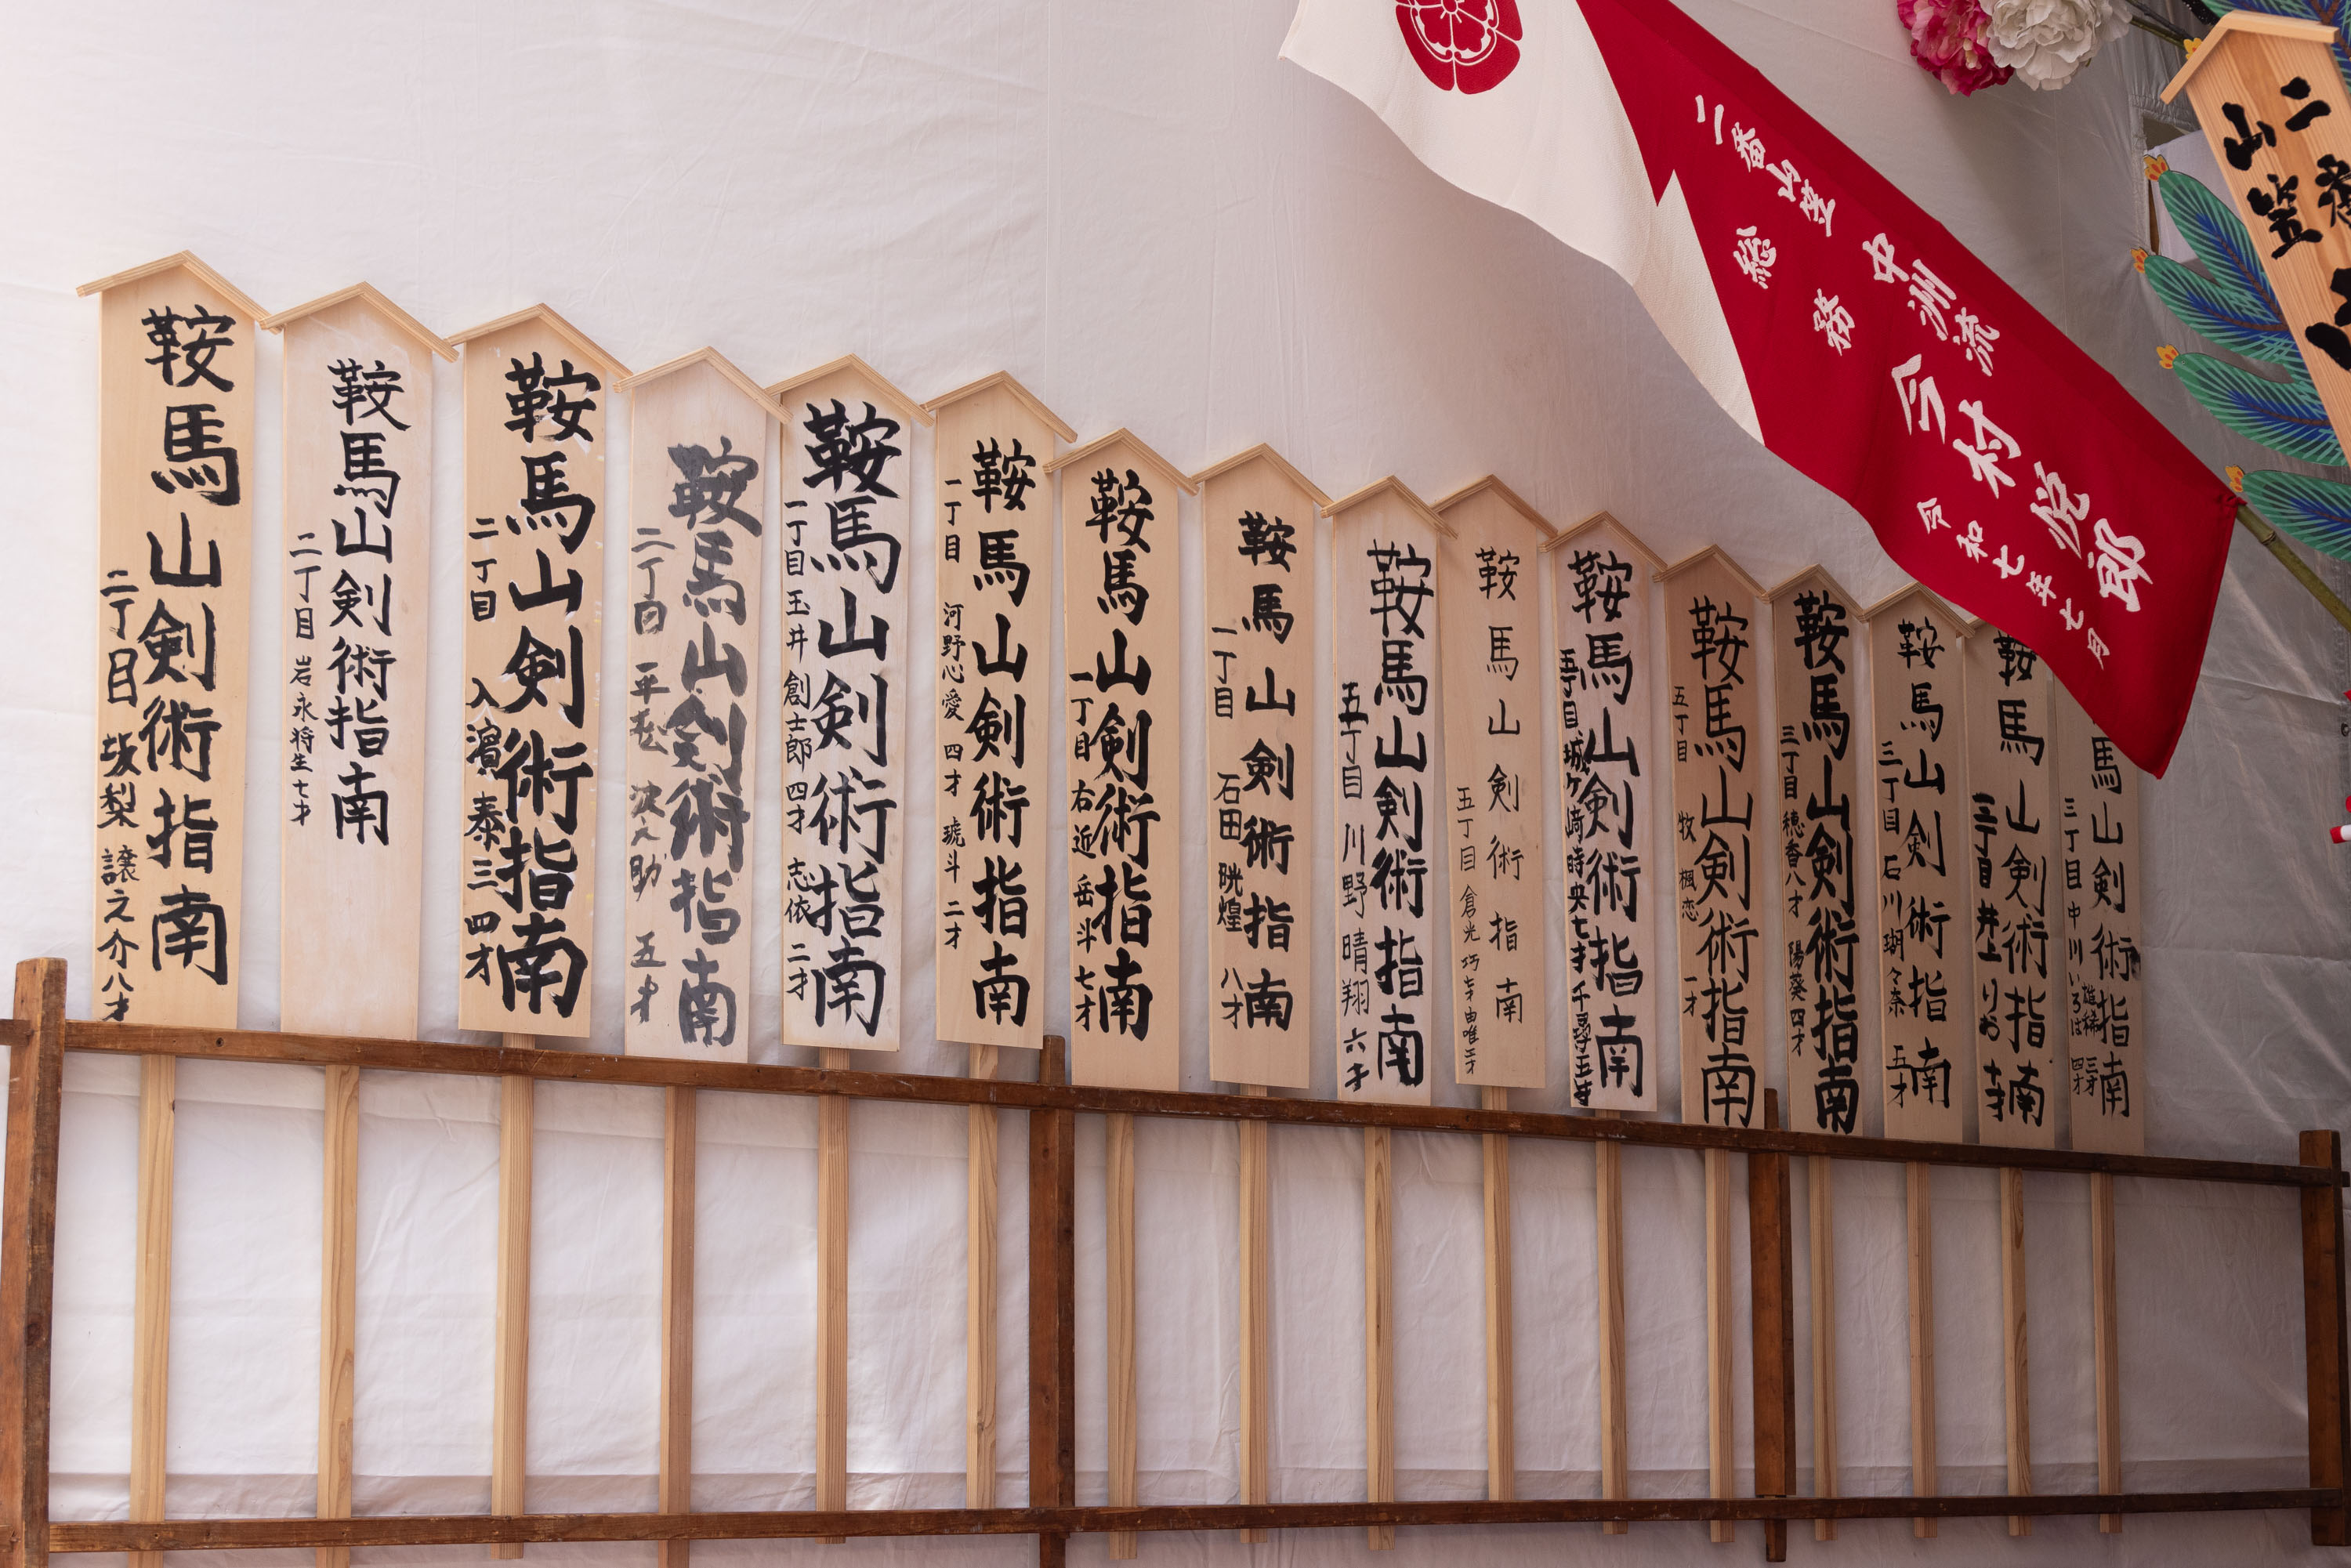 鞍馬山剣術指南
二丁目 坂梨 譲之介八才
鞍馬山剣術指南
二丁目 岩永将生七才
鞍馬山剣術指南
二丁目 入濵 泰三 四才
鞍馬山剣術指南
二丁目 平 助 五才
鞍馬山剣術指南
一丁目 玉井 創士郎 四才 志依 二才
鞍馬山剣術指南
一丁目 河野心愛 四才 琥斗 二才
鞍馬山剣術指南
一丁目 右近 岳斗 七才
鞍馬山剣術指南
一丁目 石田 晄煌 八才
鞍馬山剣術指南
五丁目 川野 晴翔 六才
鞍馬山剣術指南
五丁目 倉光 巧 七才 由唯 才
鞍馬山剣術指南
五丁目 城ケ崎 時央七才 千尋五才
鞍馬山剣術指南
五丁目 牧 楓恋 一才
鞍馬山剣術指南
三丁目 穂香八才 陽葵四才
鞍馬山剣術指南
三丁目 石川 瑚々奈 五才
鞍馬山剣術指南
三丁目 井上 りお 才
馬山剣術指南
三丁目 中川いろは 四才 雄稀 三才
二番山笠 中洲流
総務 今村悦郎
令和七年七月
二番
山笠